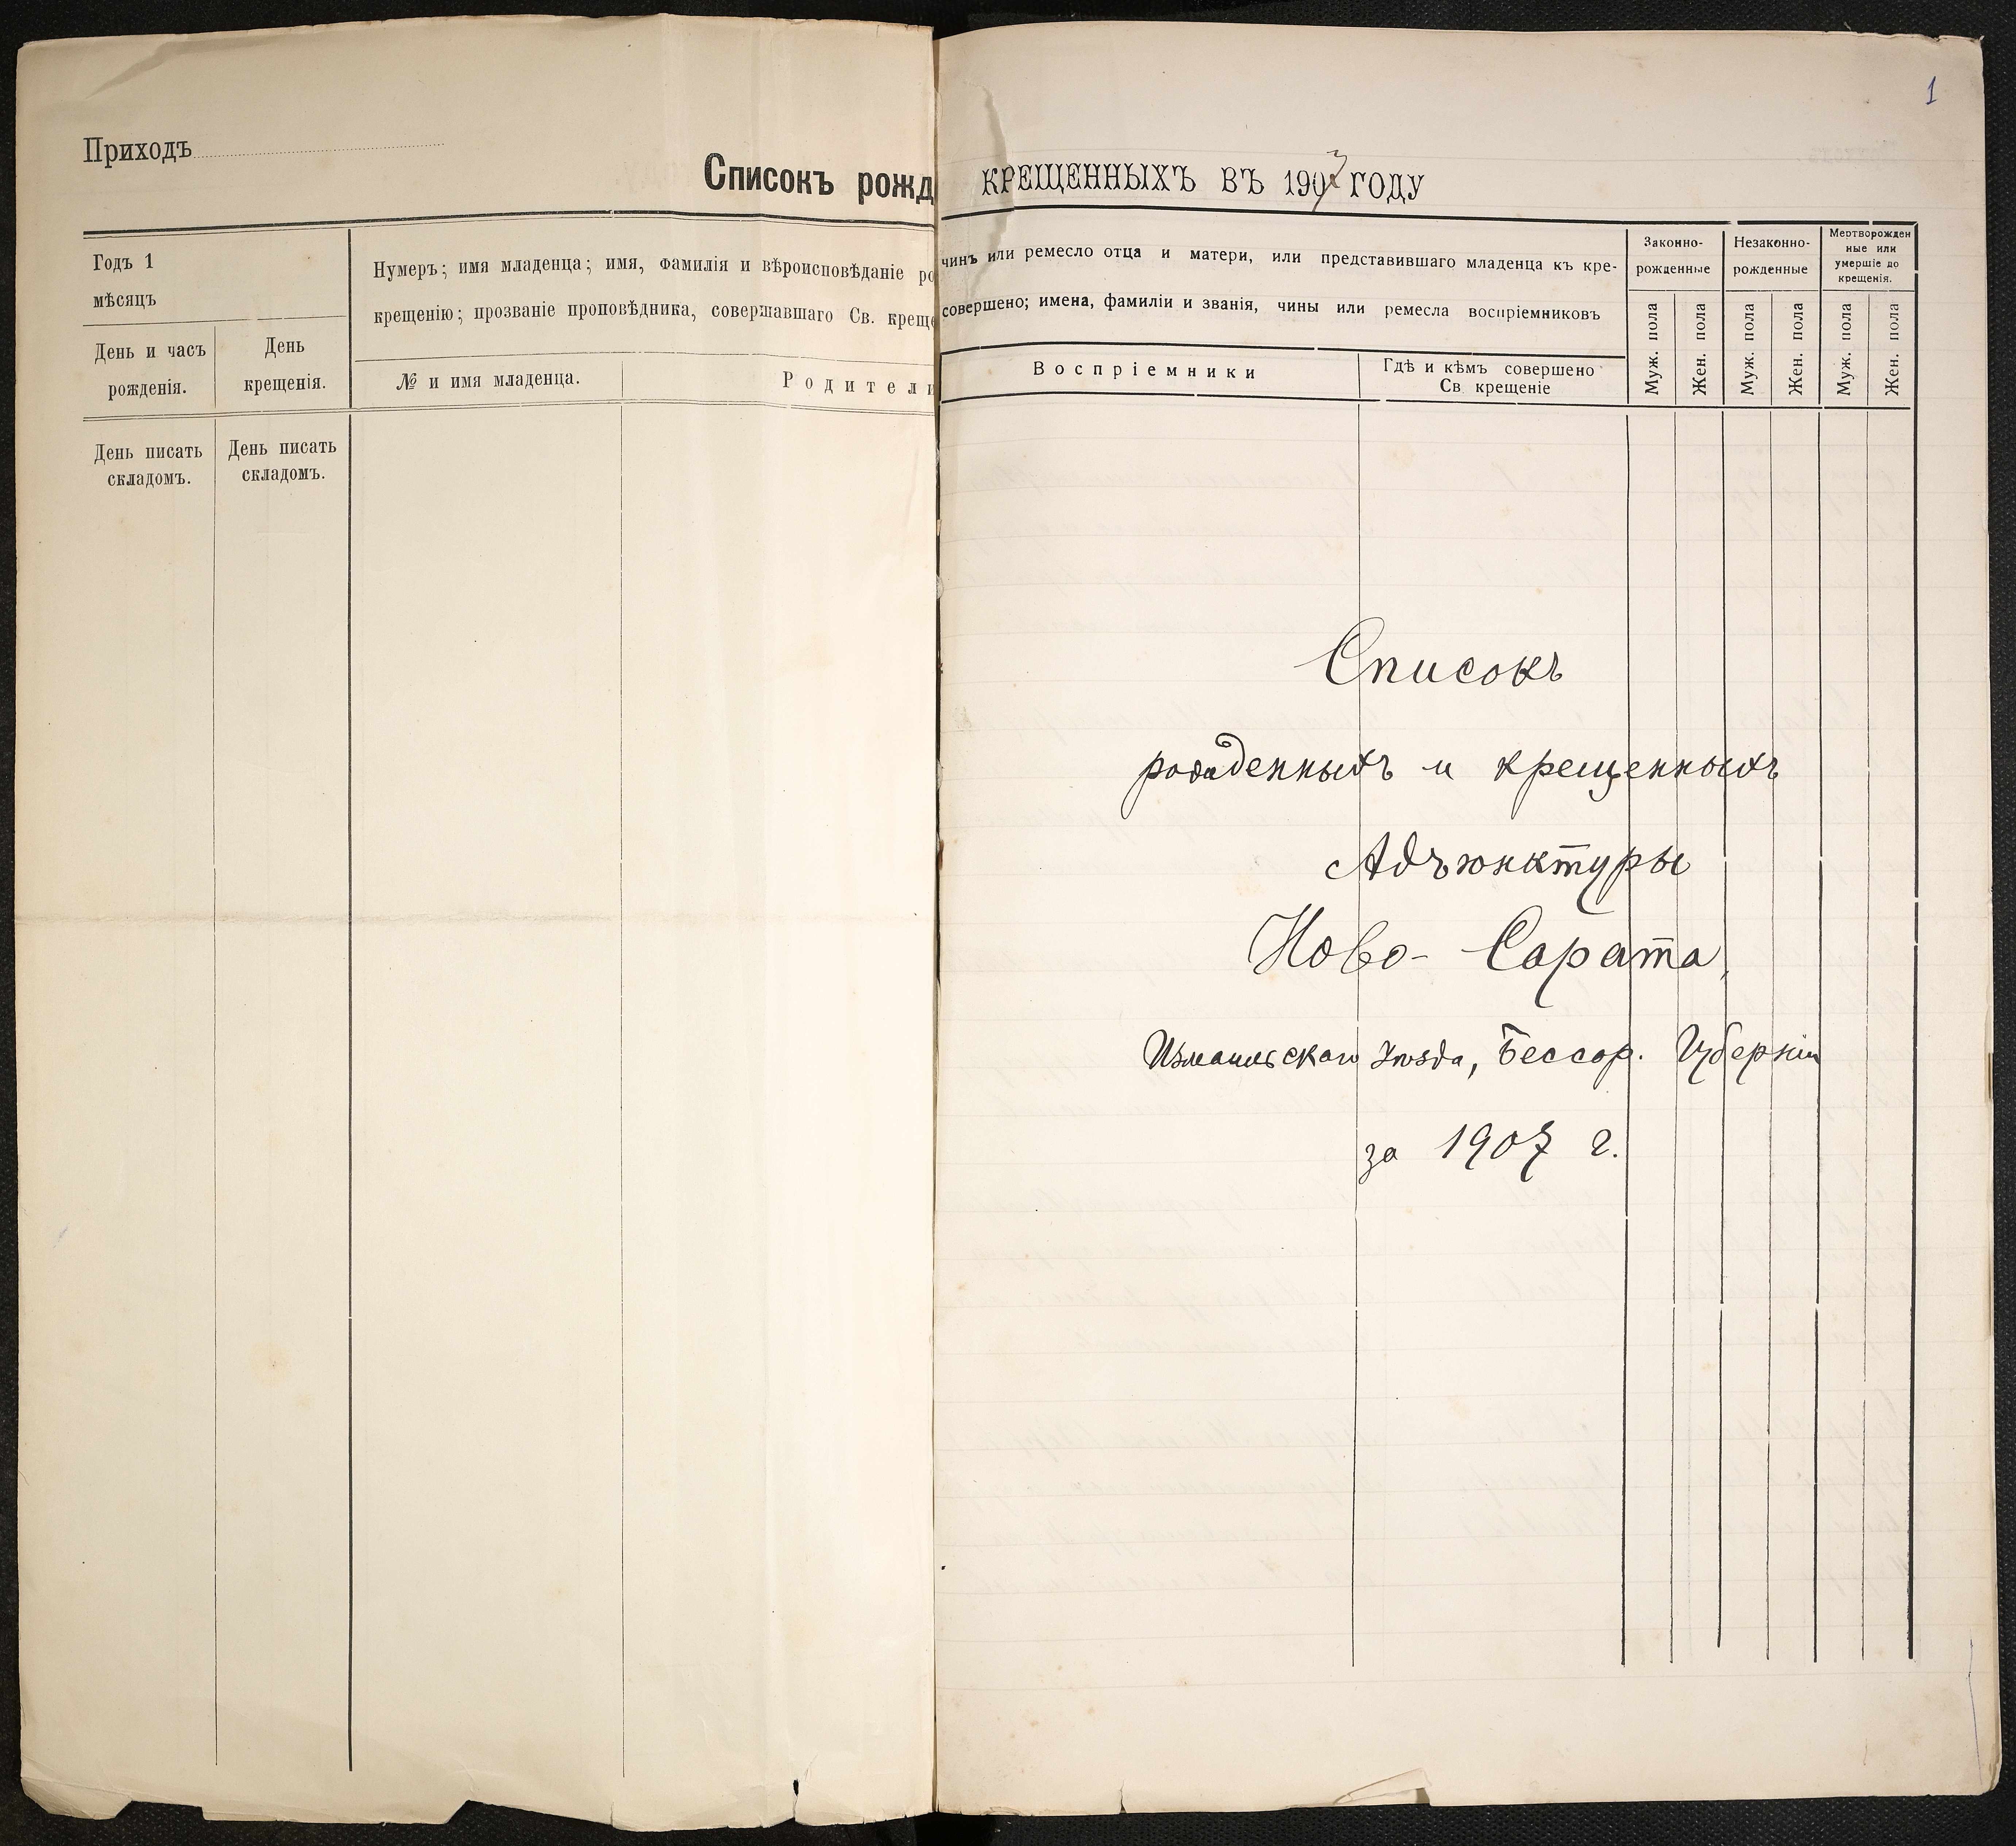 Приходъ
Списокъ рожд
Годъ 1
мѣсяцъ
День и часъ
рожденія.
День
крещенія.
Нумеръ; имя младенца; имя, фамилія и вѣроисповѣданіе ро
крещенію; прозваніе проповѣдника, совершавшаго Св. креще
№ и имя младенца.
Родители
День писать
складомъ.
День писать
складомъ.
1
КРЕЩЕННЫХЪ ВЪ 1907 ГОДУ
чинъ или ремесло отца и матери, или представившаго младенца къ кре-
совершено; имена, фамиліи и званія, чины или ремесла воспріемниковъ
Воспріемники
Гдѣ и кѣмъ совершено
Св. крещеніе
Законно-
рожденные
Незаконно-
рожденные
Мертворожден
ные или
умершіе до
крещенія.
Муж. пола
Жен. пола
Муж. пола
Жен. пола
Муж. пола
Жен. пола
Списокъ
рожденныхъ и крещенныхъ
Адъюнктуры
Ново- Сарата,
Измаильскаго Уѣзда, Бессар. Губерніи
за 1907 г.